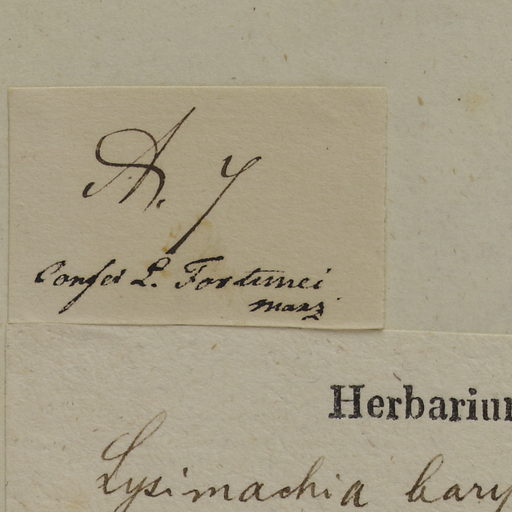 A. 7
Confer L. Fortunei
Herbariu
Lysimachia bary